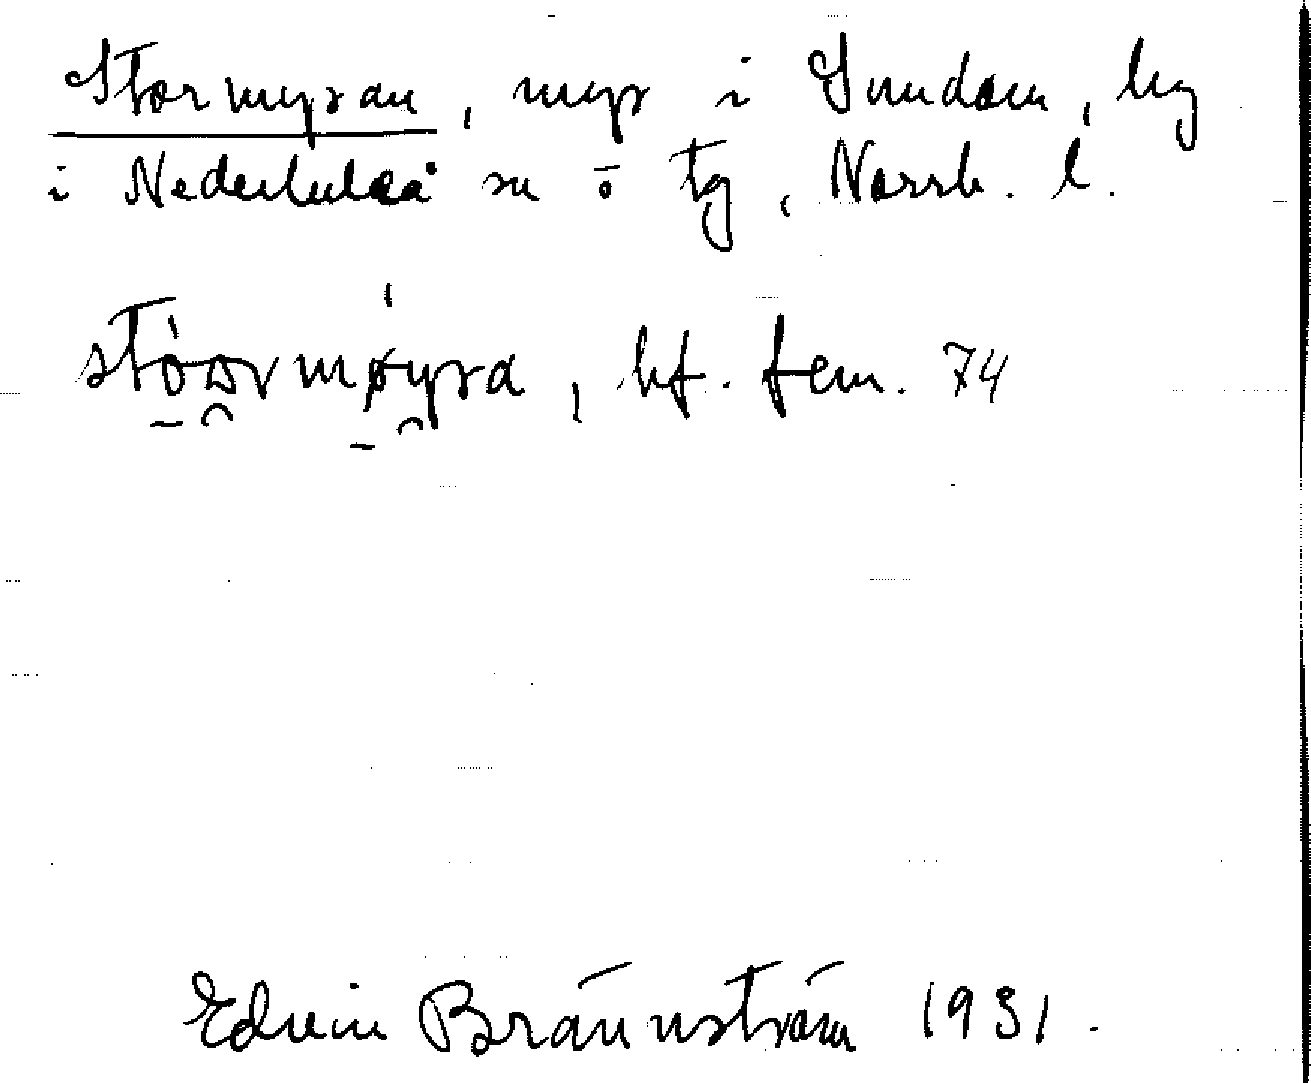 Stormyran, myr i Sundom, by
i Nederluleå sn o tg, Norrb. l.
stòormøyra, bf. fem. 74
Edvin Brännström 1931.